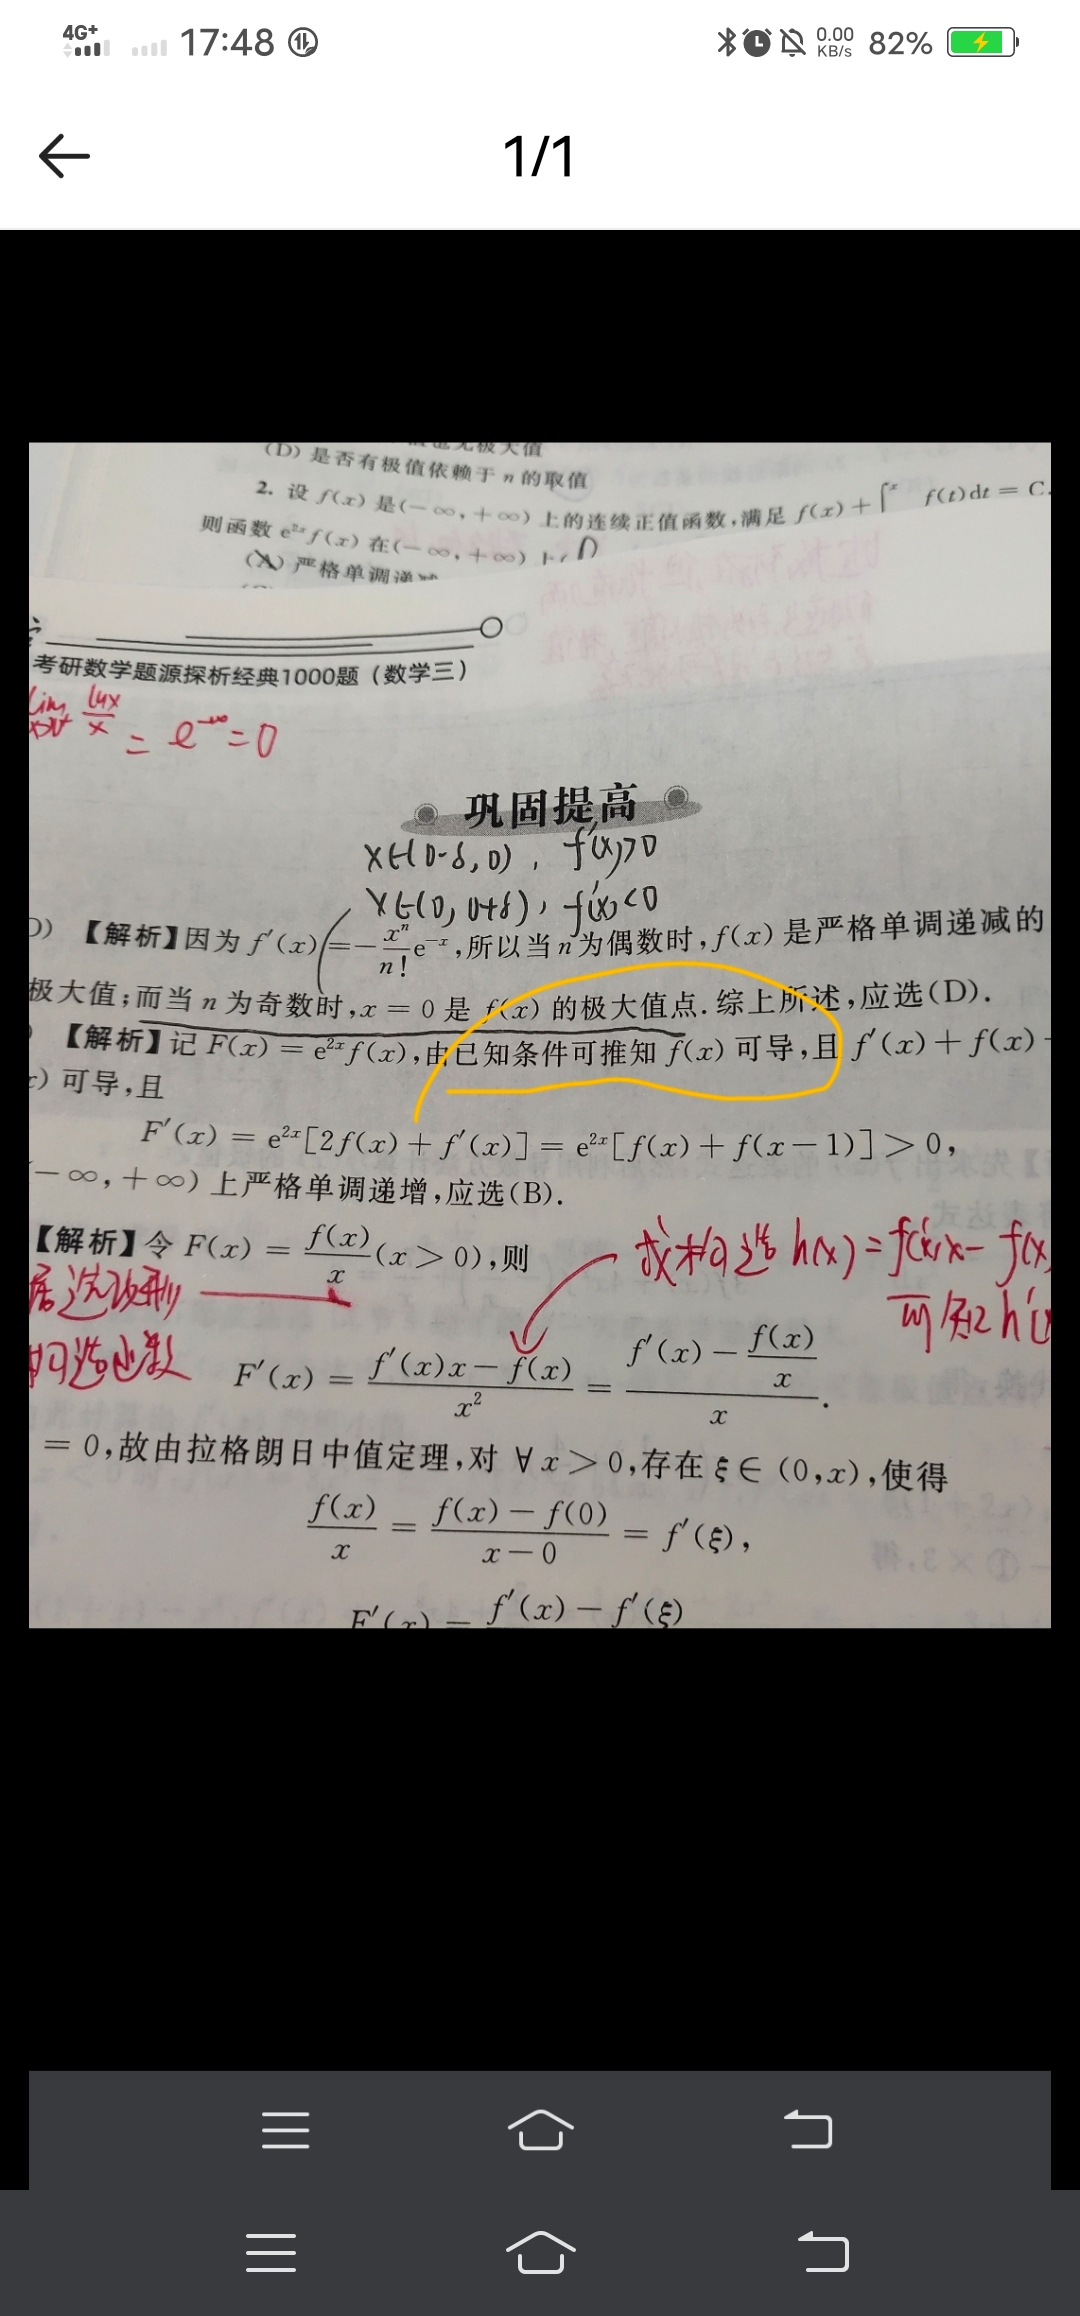 4G+ 17:48 0.00 KB/s 82%
1/1
(D) 是否有极值依赖于 n 的取值
2. 设 f(x) 是(-∞,+∞) 上的连续正值函数,满足 f(x)+∫ f(t)dt = C.
则函数 e²ˣf(x) 在(-∞,+∞) 上(
(A) 严格单调递
考研数学题源探析经典1000题（数学三）
lim lnx/x = e^-∞ = 0
巩固提高
x∈(0-δ,0), f'(x)>0
x∈(0,0+δ), f'(x)<0
D) 【解析】因为 f'(x)=-xⁿ/n! e⁻ˣ,所以当 n 为偶数时,f(x) 是严格单调递减的
极大值;而当 n 为奇数时,x = 0 是 f(x) 的极大值点.综上所述,应选(D).
【解析】记 F(x) = e²ˣf(x),由已知条件可推知 f(x) 可导,且 f'(x)+f(x)-
) 可导,且
F'(x) = e²ˣ[2f(x)+f'(x)] = e²ˣ[f(x)+f(x-1)] > 0,
-∞,+∞) 上严格单调递增,应选(B).
【解析】令 F(x) = f(x)/x (x>0),则
我构造 h(x)=f'(x)x-f(x
可知 h'(
构造函数
F'(x) = (f'(x)x-f(x))/x² = (f'(x)-f(x)/x)/x.
= 0,故由拉格朗日中值定理,对 ∀x>0,存在 ξ∈(0,x),使得
f(x)/x = (f(x)-f(0))/(x-0) = f'(ξ),
F'(x) = f'(x)-f'(ξ)